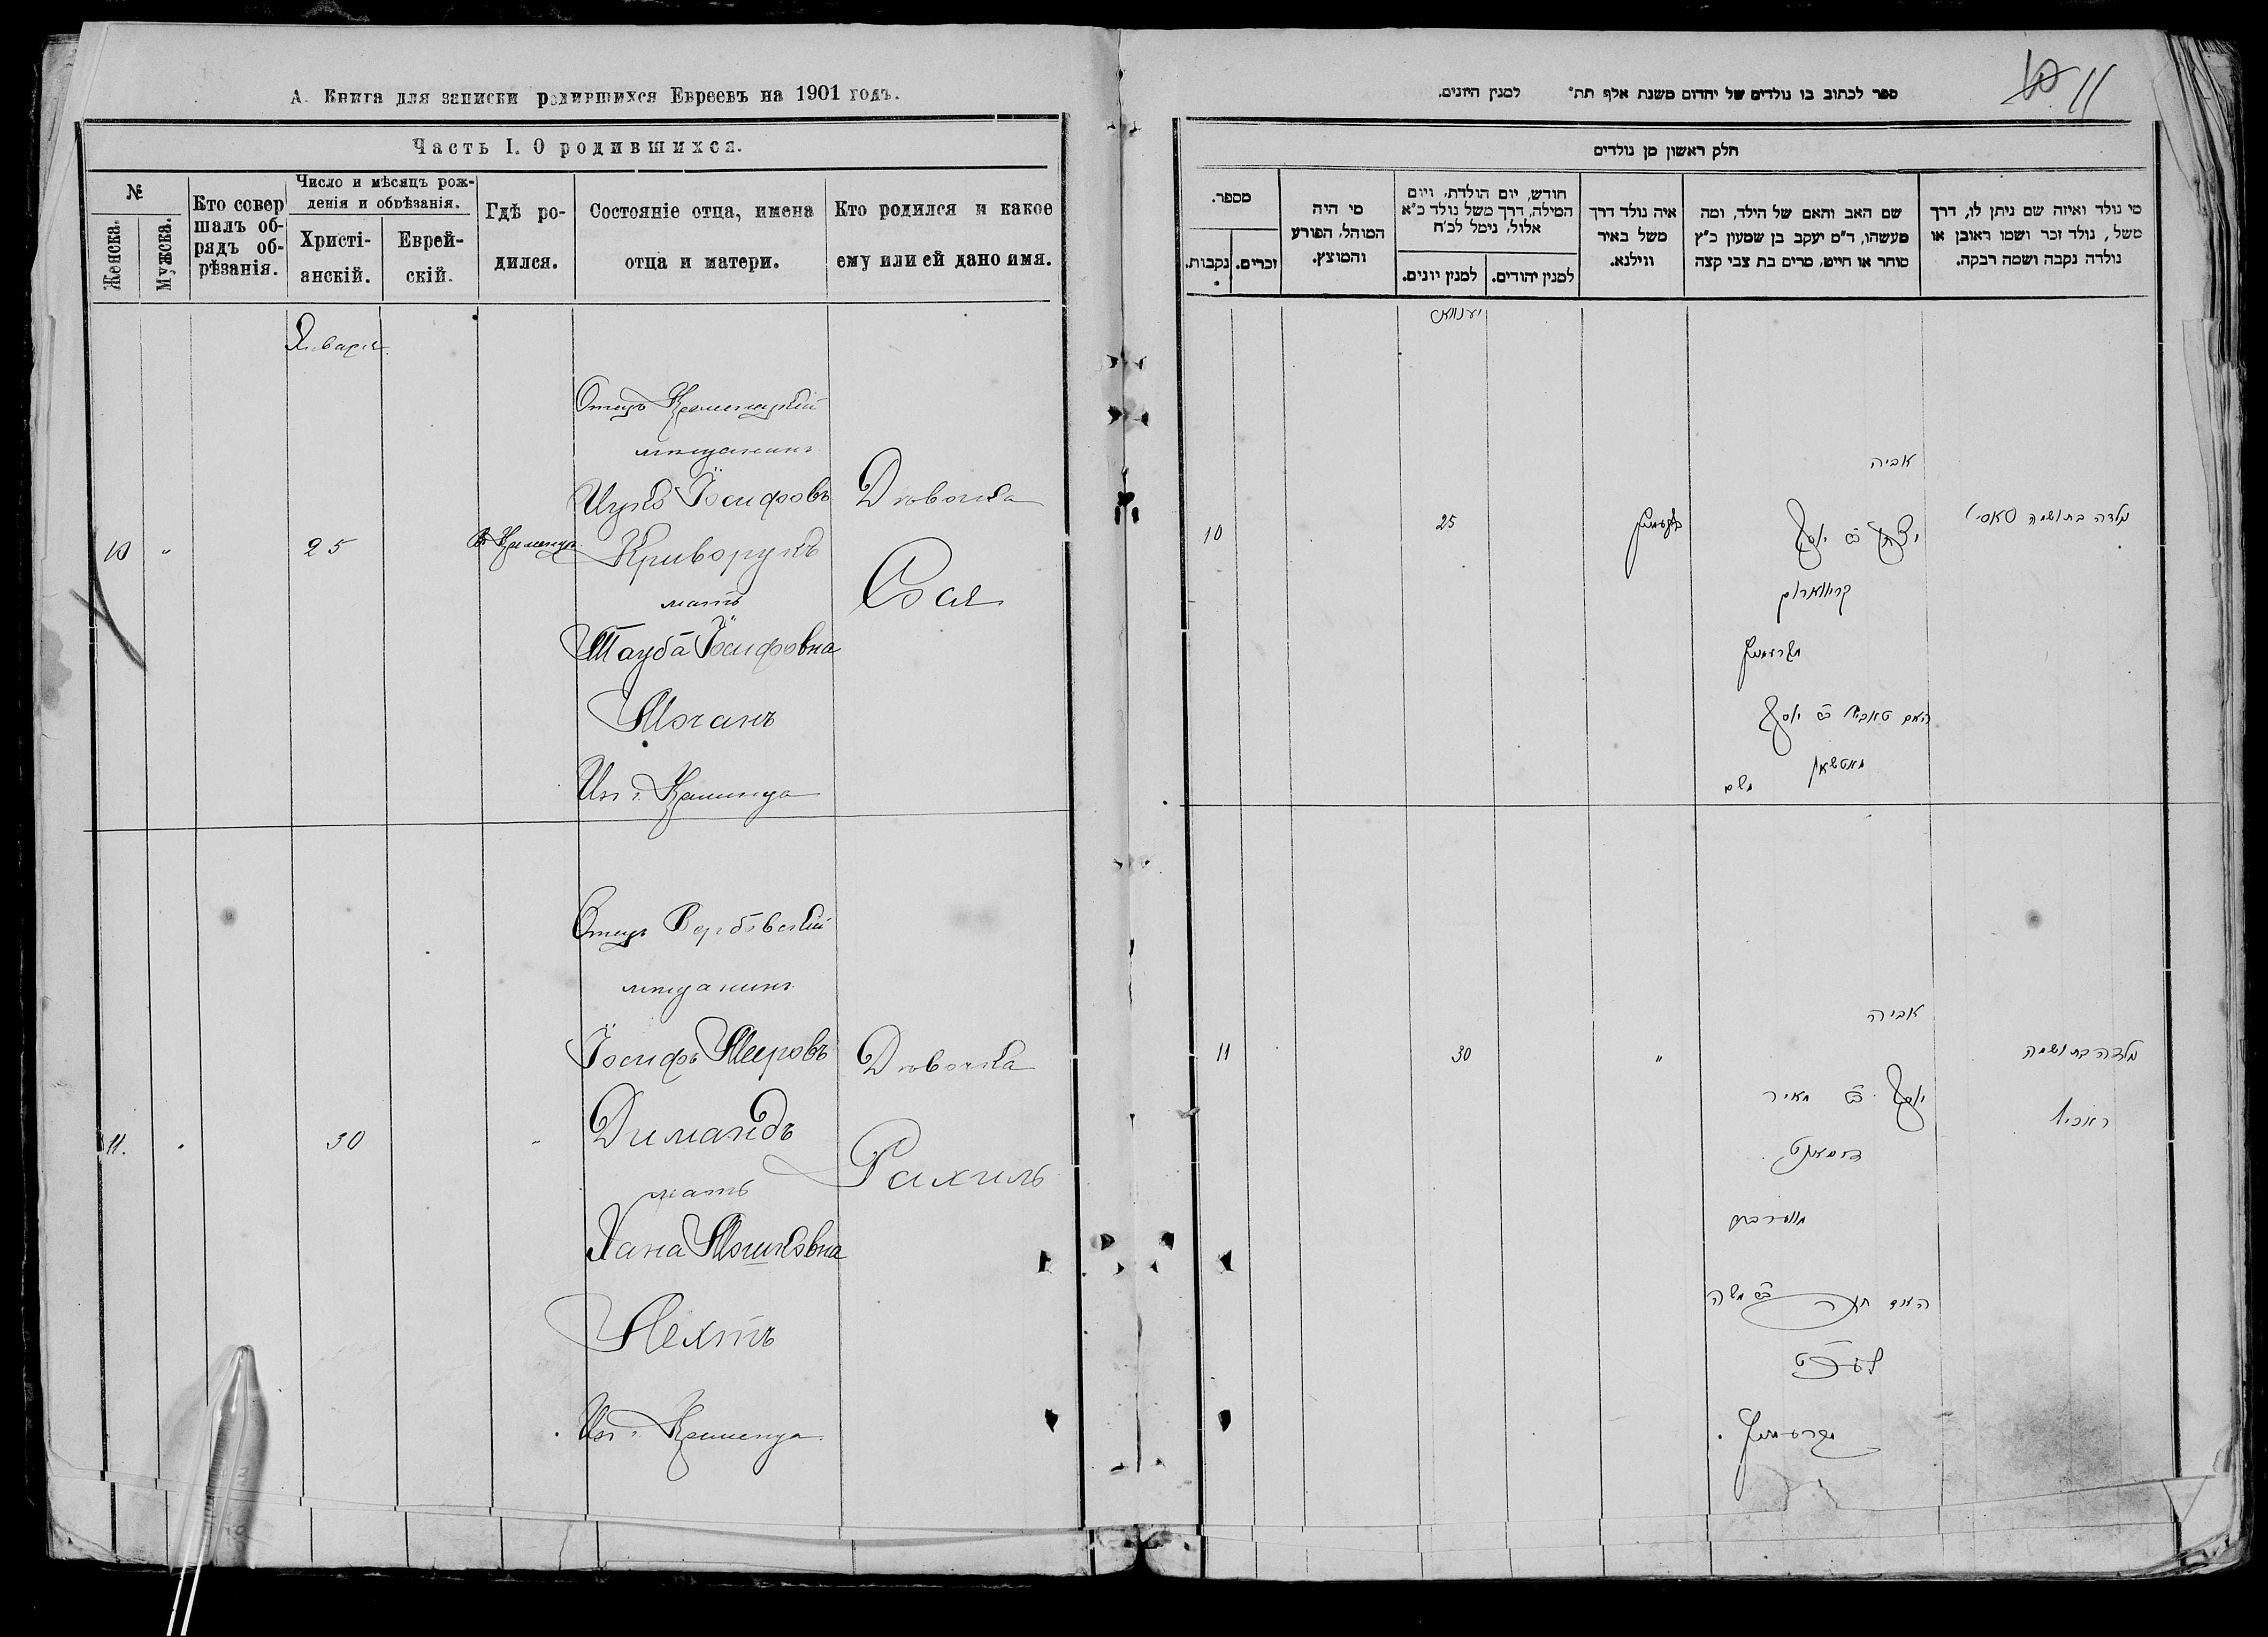 А. Книга для записки родившихся Евреевъ на 1901 годъ.
Часть I. О родившихся.
№
Женска.
Мужска.
Кто совер
шалъ об-
рядъ об-
рѣзанія.
Число и мѣсяцъ рож-
денія и обрѣзанія.
Христі-
анскій.
Еврей-
скій.
Гдѣ ро-
дился.
Состояніе отца, имена
отца и матери.
Кто родился и какое
ему или ей дано имя.
Января
Отецъ Кременецкій
мѣщанинъ
Ицко Іосифовъ
Криворукъ
мать
Тауба Іосифовна
Мочанъ
Из г. Кременца
Дѣвочка
Сося
10 " 25
Отецъ Вербовскій
мѣщанинъ
Іосифъ Меировъ
Димандъ
мать
Хана Мошковна
Из г. Кременца
Дѣвочка
Рахиль
11. 30 "
ספר לכתוב בו נולדים של יהדום משנת אלף תת" למנין היונים.
10 11
חלק ראשון מן נולדים
מספר.
נקבות.
זכרים.
מי היה
המוהל, הפורע
והמוצץ.
חודש, יום הולדת, ויום
המילה, דרך משל נולד כ"א
אלול, נימל לכ"ח
למנין יונים.
למנין יהודים.
איה נולד דרך
משל באיר
ווילנא.
שם האב והאם של הילד, ומה
מעשהו, ד"מ יעקב בן שמעון כ"ץ
סוחר או חייט, מרים בת צבי קצה
מי נולד ואיזה שם ניתן לו, דרך
משל, נולד זכר ושמו ראובן או
נולדה נקבה ושמה רבקה.
יענוואר
10
25
אביה
יצחק ב"ר יוסף
קריווארוק
האם טאבא ב"ר יוסף
מאטשאן
משם
נולדה בת ושמה סאסי
11
30
"
אביה
יוסף ב"ר מאיר
דימאנט
האם חנה ב"ר משה
נולדה בת ושמה